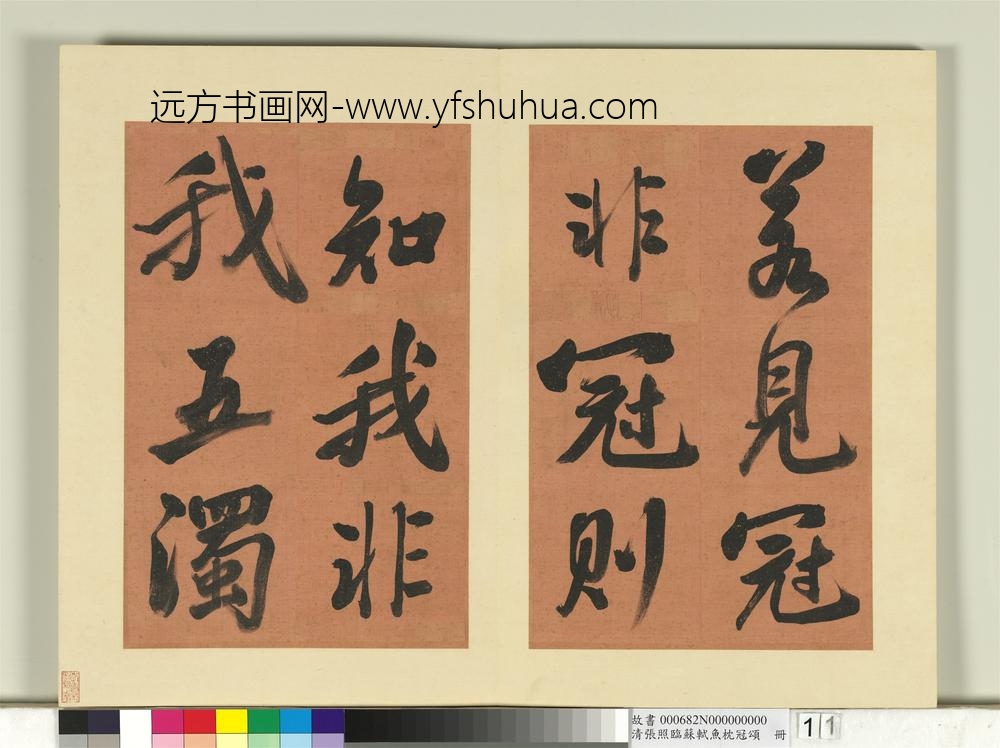 远方书画网-www.yfshuhua.com
若見冠
非冠則
知我非
我五濁
故書 000682N000000000
清張照臨蘇軾魚枕冠頌 冊
11